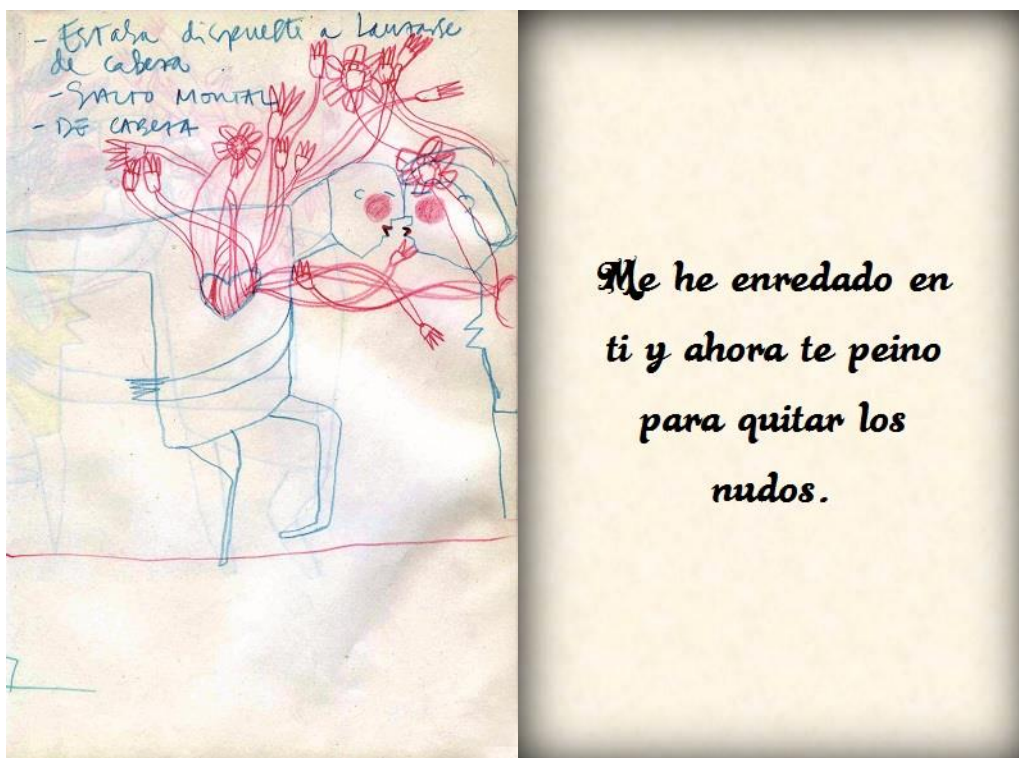 - Estaba dispuesto a Lanzarse
de cabeza
- SALTO MORTAL
- DE CABEZA
Me he enredado en
ti y ahora te peino
para quitar los
nudos.